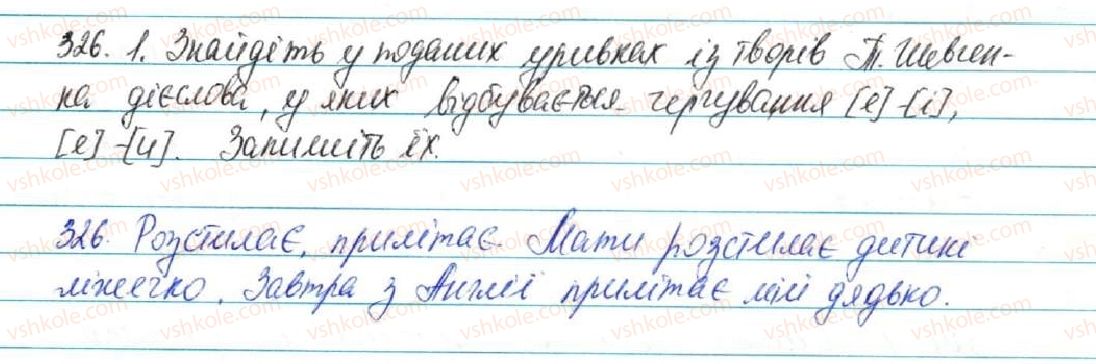 326. 1. Знайдіть у поданих уривках із творів Т. Шевчен-
ка дієслова, у яких відбувається чергування [е]-[і],
[е]-[и]. Запишіть їх.
326. Розстилає, прилітає. Мати розстилає дитині
ліжечко. Завтра з Англії прилітає мій дядько.